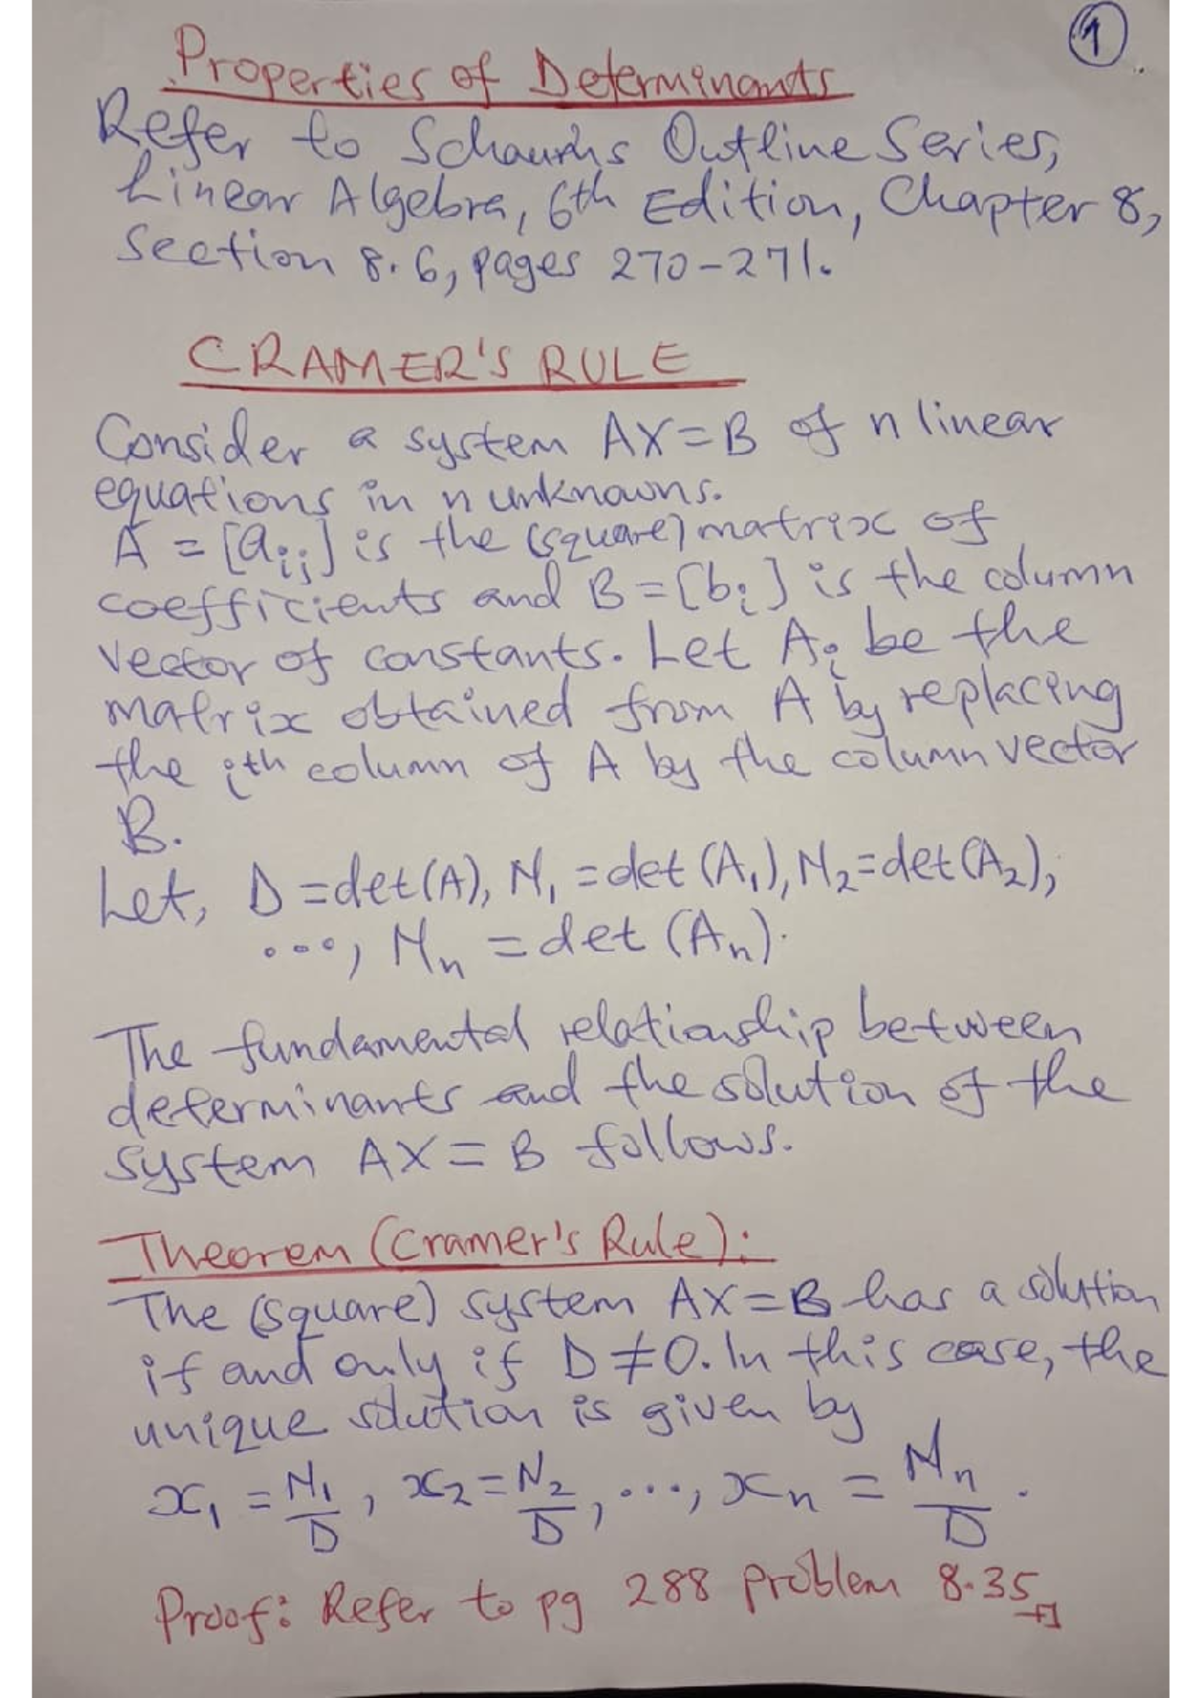 1
Properties of Determinants
Refer to Schaum's Outline Series,
Linear Algebra, 6th Edition, Chapter 8,
Section 8.6, pages 270-271.
CRAMER'S RULE
Consider a system AX=B of n linear
equations in n unknowns.
A = [aᵢⱼ] is the (square) matrix of
coefficients and B=[bᵢ] is the column
vector of constants. Let Aᵢ be the
matrix obtained from A by replacing
the ith column of A by the column vector
B.
Let, D=det(A), N₁=det(A₁), N₂=det(A₂),
..., Nₙ = det(Aₙ).
The fundamental relationship between
determinants and the solution of the
system AX=B follows.
Theorem (Cramer's Rule):
The (square) system AX=B has a solution
if and only if D≠0. In this case, the
unique solution is given by
x₁ = N₁/D, x₂ = N₂/D, ..., xₙ = Nₙ/D.
Proof: Refer to pg 288 problem 8.35